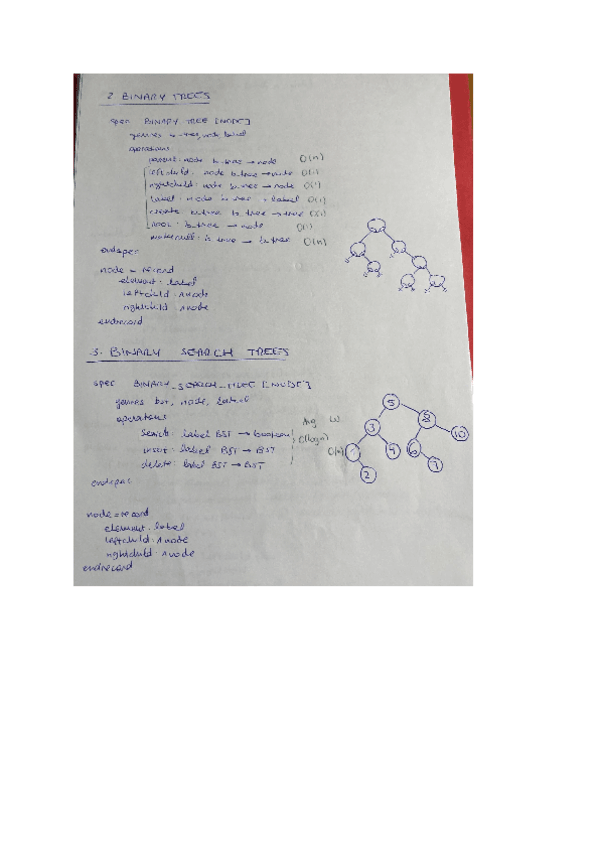 2 BINARY TREES
spec BINARY TREE [NODE]
genres b-tree, node, label
operations
parent: node b-tree → node O(n)
leftchild: node b-tree → node O(1)
rightchild: node b-tree → node O(1)
label: node b-tree → label O(1)
create b-tree b-tree → tree O(1)
root: b-tree → node O(1)
makenull: b-tree → b-tree O(n)
endspec
node = record
element: label
leftchild: ^node
rightchild: ^node
endrecord
3. BINARY SEARCH TREES
spec BINARY_SEARCH_TREE [NODE]
genres bst, node, label
operations
Avg W
search: label BST → boolean O(logn)
insert: label BST → BST O(n)
delete: label BST → BST
endspec
node = record
element: label
leftchild: ^node
rightchild: ^node
endrecord
5
3 8
1 4 6 10
2 7